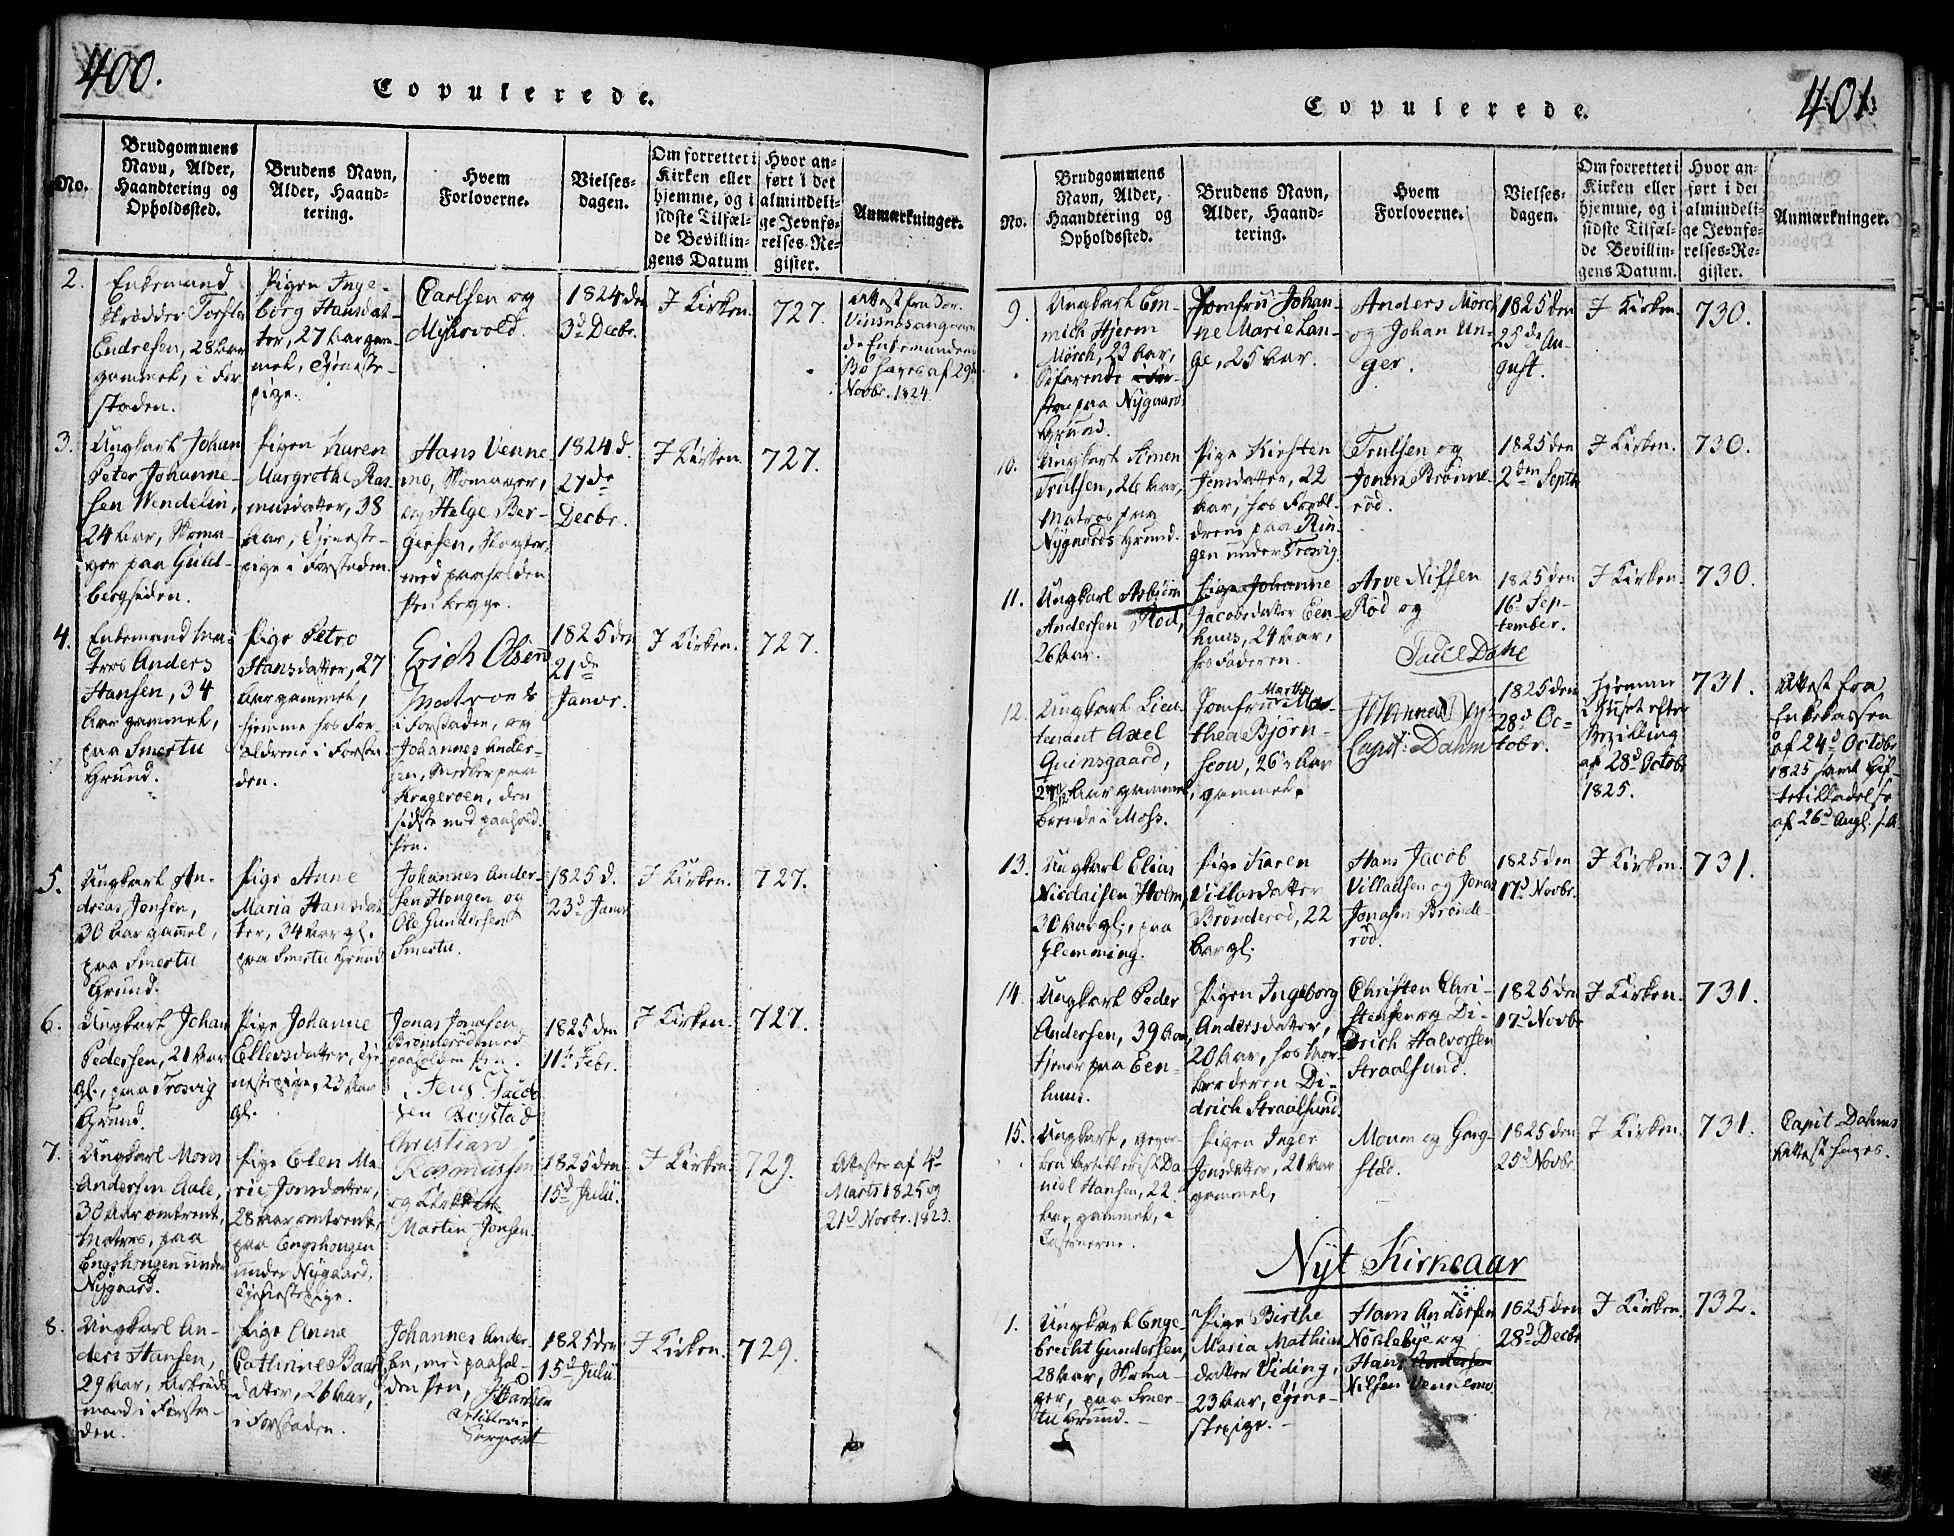 400.
Copulerede.
No.
Brudgommens
Navn, Alder,
Haandtering og
Opholdssted.
Brudens Navn,
Alder, Haand-
tering.
Hvem
Forloverne.
Vielses-
dagen.
Om forrettet i
Kirken eller
hjemme, og i
sidste Tilfæl-
de Bevillin-
gens Datum
Hvor an-
ført i det
almindeli-
ge Jevnfø-
relses-Re-
gister.
Anmærkninger.
2.
Enkemand
Skrædder Torsten
Endresen, 28 Aar
gammel, i For-
staden.
Pigen Inge-
borg Hansdat-
ter, 27 Aar gam-
mel, Tjeneste-
pige.
Carlsen og
Myhrvold.
1824 den
3d Decbr.
I Kirken.
727.
Attest fra
de Enkemandens
Bo haves af 29de
Novbr. 1824
3.
Ungkarl Johan
Peter Johanne-
sen Wendelin,
24 Aar, Skoma-
ger paa Guld-
bergsiden.
Pigen Karen
Margrethe Ras-
musdatter, 38
Aar, Tjeneste-
pige i Forstaden.
Hans Venne-
mo, Skomager,
og Helge Ber-
gersen,
med paaholden
Pen begge.
1824 d.
27de
Decbr.
I Kirken.
727.
4.
Enkemand Ma-
tros Anders
Hansen, 34
Aar gammel,
paa Smertu
Grund.
Pige Petro
Hansdatter, 27
Aar gammel,
hjemme hos For-
ældrene i Forsta-
den.
Erich Olsen
Matros
i Forstaden, og
Johannes Ander-
sen, Snedker paa
Krageroen, den
sidste med paahold.
Pen.
1825 den
21de
Janvr.
I Kirken.
727.
5.
Ungkarl An-
dreas Jonsen,
30 Aar gammel,
paa Smertu
Grund.
Pige Anne
Maria Hansdat-
ter, 34 Aar gl.
paa Smertu Grund
Johannes Ander-
sen Hougen og
Ole Gundersen
Smertu.
1825 d.
23d Janvr
I Kirken.
727.
6.
Ungkarl Johan
Pedersen, 21 Aar
gl., paa Trosvig
Grund.
Pige Johanne
Ellevsdatter, Tje-
nestepige, 23 Aar
gl.
Jonas Jonasen
Brønderød med
paaholden Pen.
Jens Jacob-
sen Brystad
1825 den
11te Febr.
I Kirken.
727.
7.
Ungkarl Mons
Andersen Aale,
30 Aar omtrent,
Matros, paa
Engehougen under
Nygaard.
Pige Elen Ma-
rie Jonsdatter,
28 Aar omtrent,
paa Engehougen
under Nygaard,
Tjenestepige.
Christian
Rasmussen
og
Martin Jonsen.
1825 den
15d Julii.
I Kirken.
729.
Attester af 4d
Marts 1825 og
21d Novbr. 1823.
8.
Ungkarl An-
ders Hansen,
29 Aar, Arbeids-
mand i Forsta-
den.
Pige Anne
Cathrine Baar-
datter, 26 Aar,
i Forstaden.
Johannes Ander-
sen, med paahol-
den Pen,
Artillerie
Sergeant
1825 den
15d Julii
I Kirken.
729.
401.
Copulerede.
No.
Brudgommens
Navn, Alder,
Haandtering og
Opholdssted.
Brudens Navn,
Alder, Haand-
tering.
Hvem
Forloverne.
Vielses-
dagen.
Om forrettet i
Kirken eller
hjemme, og i
sidste Tilfæl-
de Bevillin-
gens Datum.
Hvor an-
ført i det
almindeli-
ge Jevnfø-
relses-Re-
gister.
Anmærkninger.
9.
Ungkarl Em-
mich Hjerm
Mørch, 23 Aar,
Søfarende i For-
sta paa Nygaards
Grund.
Jomfru Johan-
ne Marie Lan-
ge, 25 Aar.
Anders Mørch
og Johan Un-
ger.
1825 den
25de Au-
gust.
I Kirken.
730.
10.
Ungkarl Simen
Trulsen, 26 Aar,
Matros paa
Nygaards Grund.
Pige Kirsten
Jensdatter, 22
Aar, hos Foræl-
drene paa Rin-
gen under Trosvig.
Trulsen og
Jonas Brønne-
rød.
1825 den
2den Septb
I Kirken.
730.
11.
Ungkarl Asbjørn
Andersen Rød,
26 Aar.
Pige Johanne
Jacobsdatter Een-
huus, 24 Aar,
hos Faderen.
Arve Nilsen
Rød og
1825 den
16d Sep-
tember.
I Kirken.
730.
12.
Ungkarl Lieu-
tenant Axel
Quinsgaard,
27 1/2 Aar gammel,
boende i Moss.
Jomfru Marthe
Mar-
thea Bjørn-
scow, 26 1/2 Aar
gammel.
Capit: Dahm
1825 den
28d Oc-
tobr.
Hjemme
i Huset efter
Bevilling
af 28d Octobr
1825.
731.
Attest fra
Enkekassen
af 24d Octobr
1825 samt Gif-
tetilladelse
af 26d
13.
Ungkarl Elias
Nicolaisen Holm,
30 Aar gl., paa
Glemming.
Pige Karen
Villasdatter
Brønderød, 22
Aar gl.
Hans Jacob
Villadsen og Jonas
Jonasen Brønde-
rød.
1825 den
17d Novbr.
I Kirken.
731.
14.
Ungkarl Peder
Andersen, 39 Aar,
tjener paa Een-
huus.
Pigen Ingeborg
Andersdatter,
20 Aar, hos Mor-
broderen Di-
drich Straalsund.
Christen Chri-
stensen og Di-
drich Halvorsen
Straalsund.
1825 den
17d Novbr
I Kirken.
731.
15.
Ungkarl, gevor-
ben Artillerist Da-
niel Hansen, 22
Aar gammel, i
Casernerne.
Pigen Inger
Jonsdatter, 21 Aar
gammel,
Moum og Gregs-
stad.
1825 den
25d Novbr.
I Kirken.
731.
Capit. Dahms
Attest haves.
Nyt Kirkeaar
1.
Ungkarl Enge-
brecht Gundersen,
28 Aar, Skoma-
ger, paa Smer-
tu Grund.
Pige Birthe
Maria Mathias-
datter Viding,
23 Aar, Tjene-
stepige.
Hans Andersen
Norleby og
Hans Andersen
Nilsen Vennemo
1825 den
28d Decbr
I Kirken.
732.